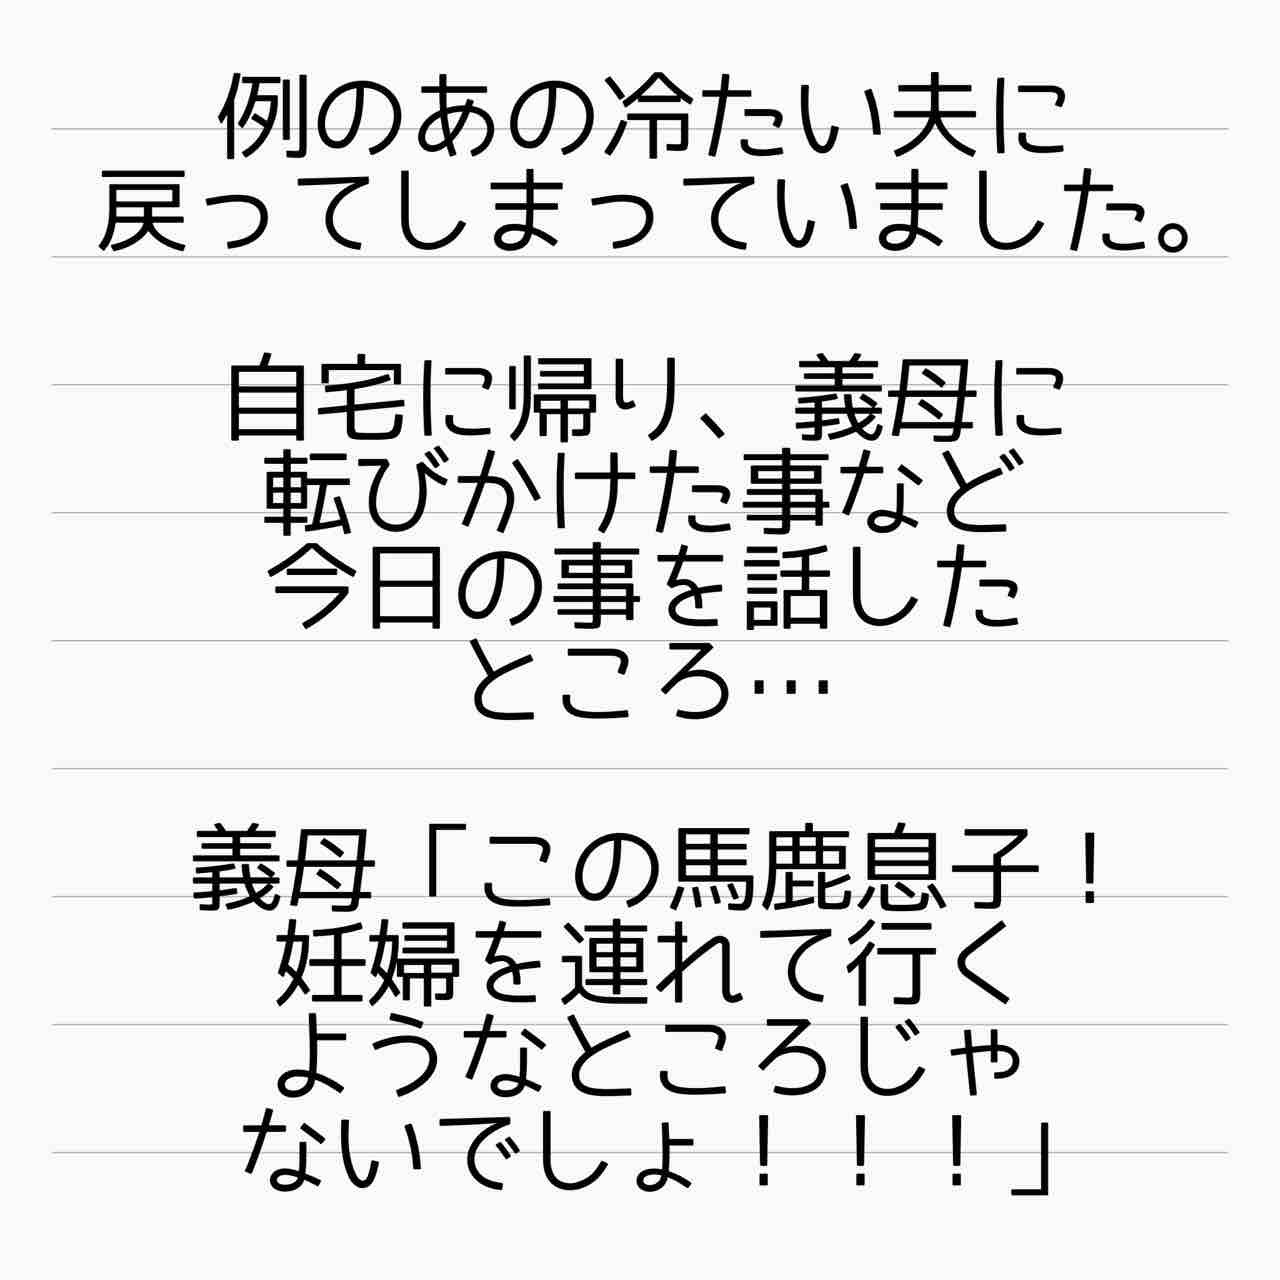 例のあの冷たい夫に
戻ってしまっていました。
自宅に帰り、義母に
転びかけた事など
今日の事を話した
ところ…
義母「この馬鹿息子！
妊婦を連れて行く
ようなところじゃ
ないでしょ！！！」